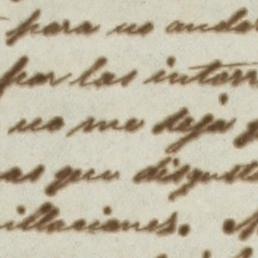 para no andar
por las intorr
no me deja q
as que disgusta
illaciones. A